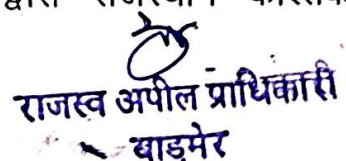 द्वारा राजस्थान
राजस्व अपील प्राधिकारी
बाड़मेर